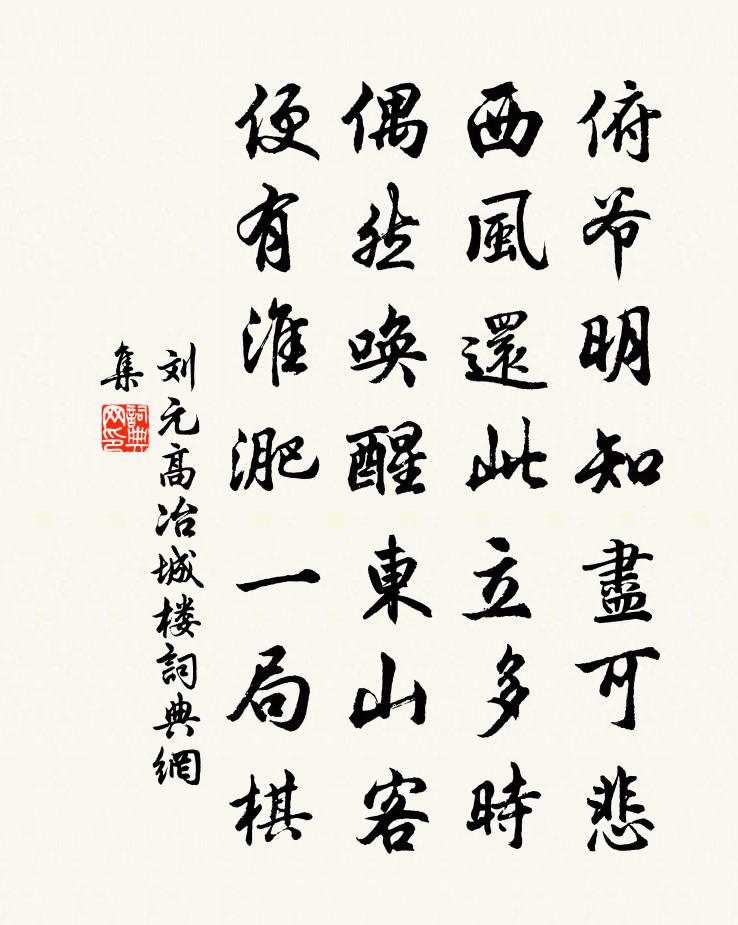 俯明知盡可悲
西風還此立多時
偶然喚醒東山客
便有淮淝一局棋
刘元高冶城楼詞典網
集
詞典网印